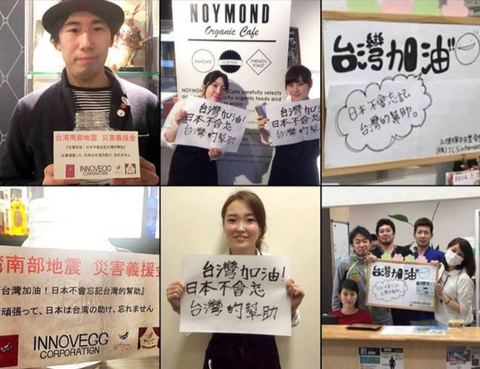 台湾南部地震 災害義援金
『台灣加油！日本不會忘記台灣的幫助』
台湾頑張って、日本は台湾の助け、忘れません
INNOVEGG
CORPORATION
NOYMOND
Organic Cafe
PANCAKE
COFFEE
FRENCH TOAST
台灣加油!
日本不會忘
台灣的幫助
台灣加油!
日本不會忘
台灣的幫助
台灣加油
日本不會忘記
台灣的幫助。
湾南部地震 災害義援金
『台灣加油！日本不會忘記台灣的幫助』
頑張って、日本は台湾の助け、忘れません
INNOVEGG
CORPORATION
台灣加油!
日本不會忘
台灣的幫助
台灣加油